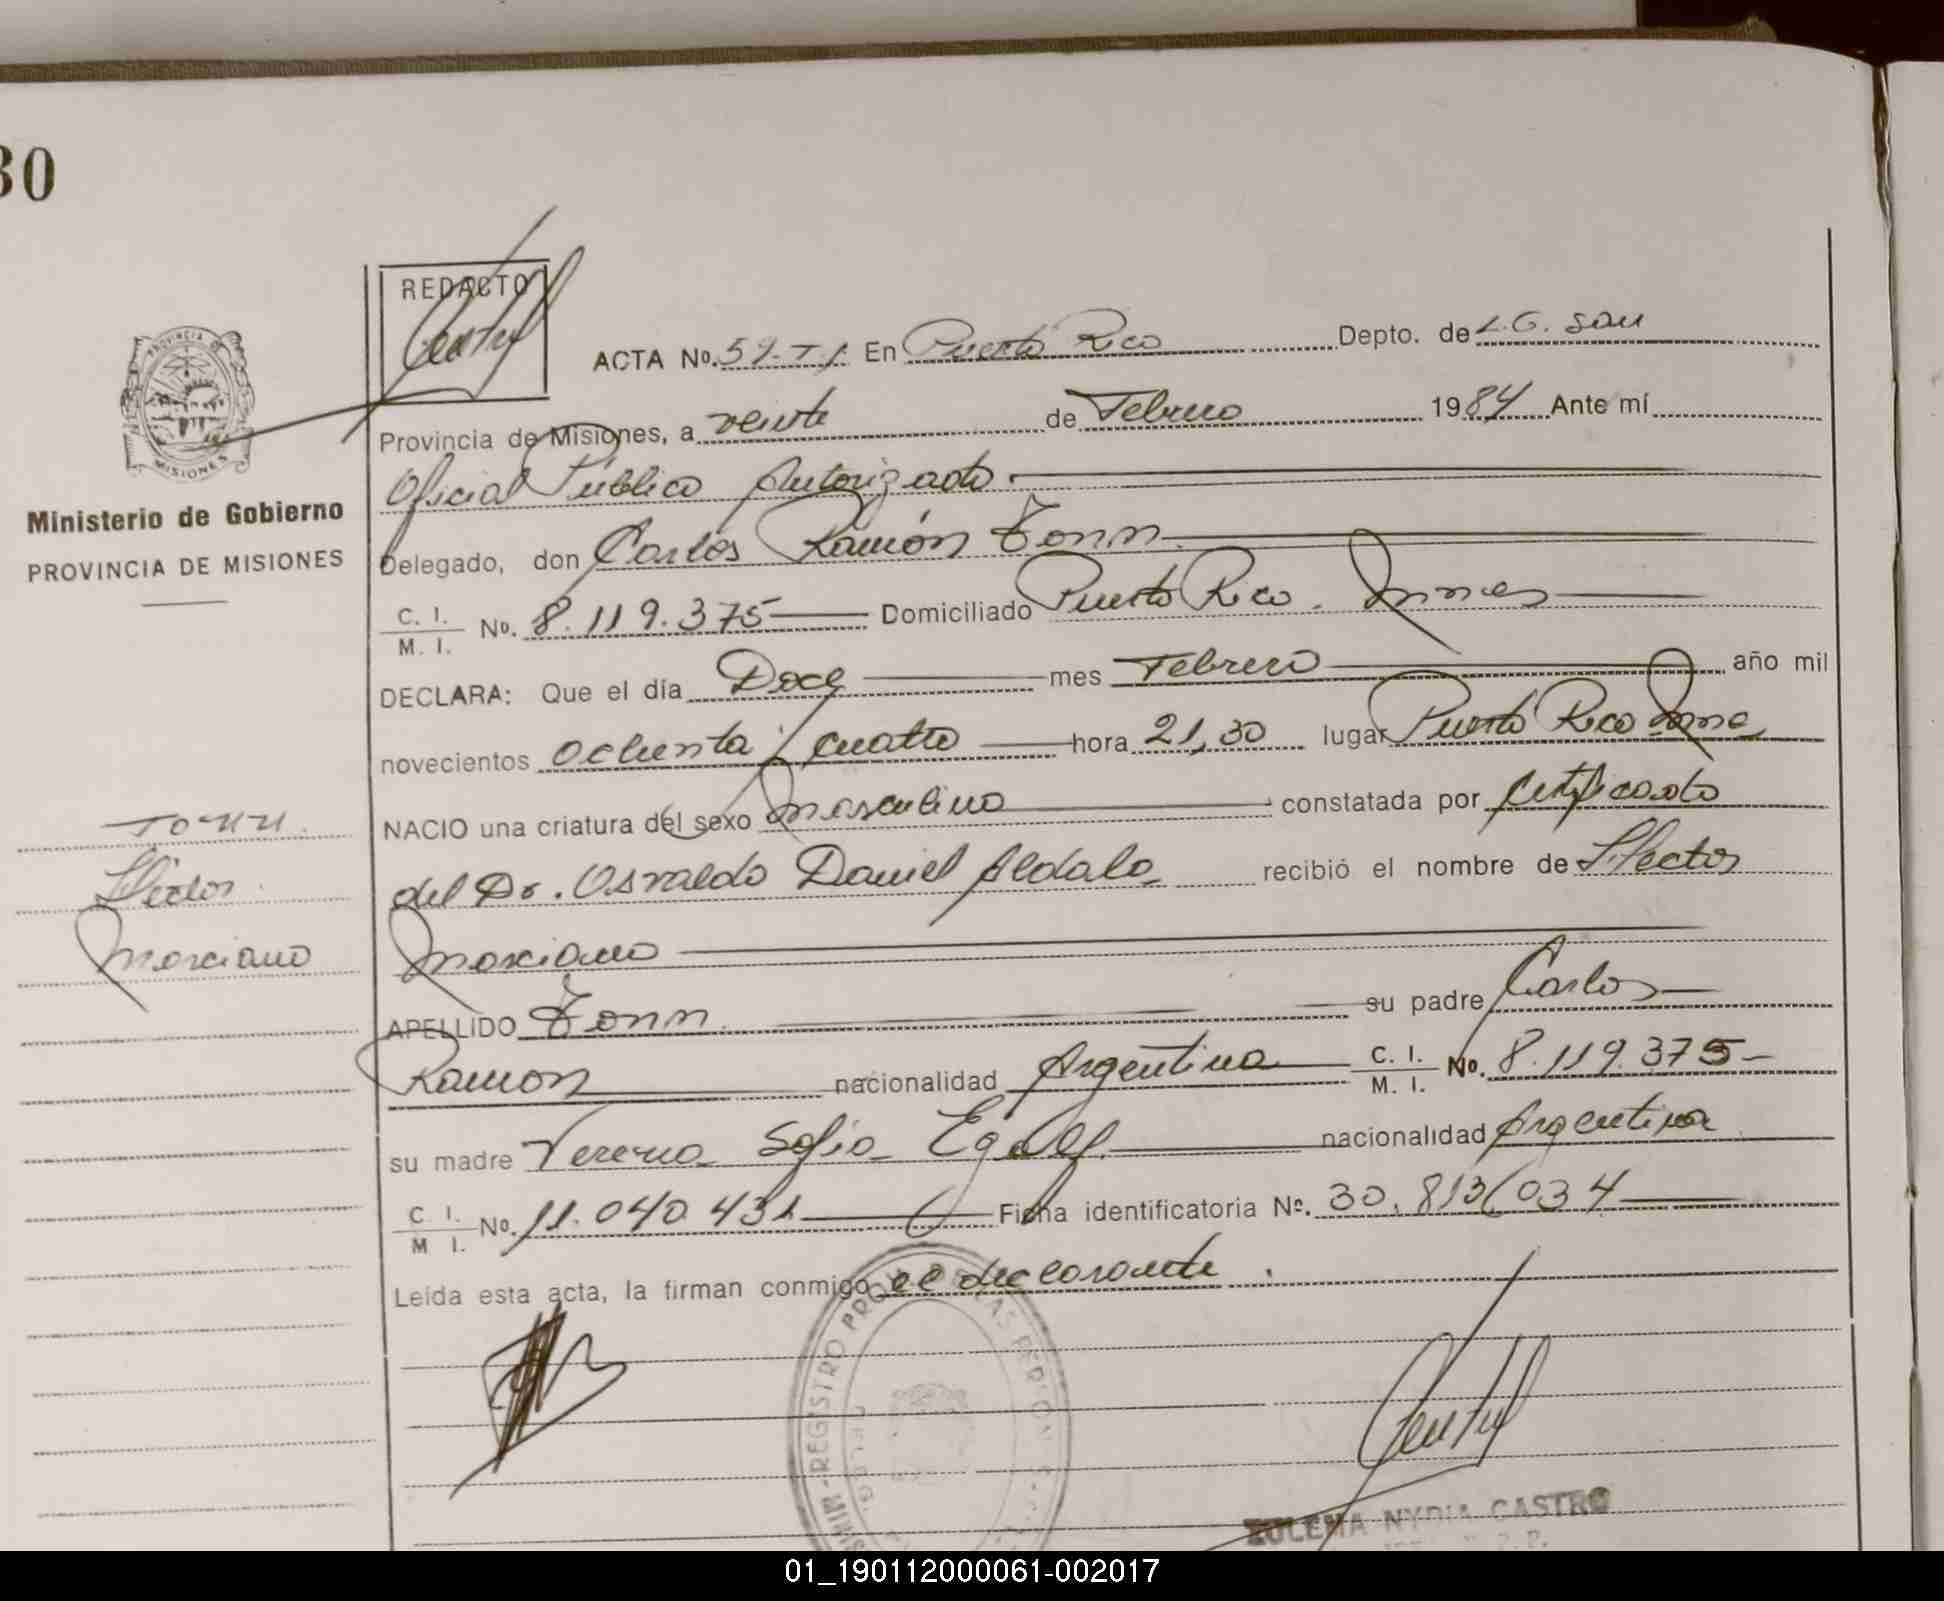 30
REDACTO
ACTA No. 59-T I. En Puerto Rico Depto. de L.G. San
Provincia de Misiones, a veinte de Febrero 1984 Ante mí
Oficial Público Autorizado
Delegado, don Carlos Ramón Tonn.
C. I. M. I. No. 8.119.375 Domiciliado Puerto Rico. Mnes
DECLARA: Que el día Doce mes Febrero año mil
novecientos ochenta y cuatro hora 21,30 lugar Puerto Rico Mnes
NACIO una criatura del sexo masculino constatada por certificado
del Dr. Osvaldo Daniel Aldalo recibió el nombre de Hector
Marciano
APELLIDO Tonn. su padre Carlos
Ramon nacionalidad Argentina C. I. M. I. No. 8.119.375-
su madre Verena Sofia nacionalidad Argentina
C I. M I. No. 11.040.431 Ficha identificatoria Nº. 30.813.034
Leída esta acta, la firman conmigo el declarante.
PROVINCIA DE MISIONES
Ministerio de Gobierno
PROVINCIA DE MISIONES
Tonn.
Hector
Marciano
REGISTRO PROV. DE LAS PERSONAS
ZULEMA NYDIA CASTRO
01_190112000061-002017